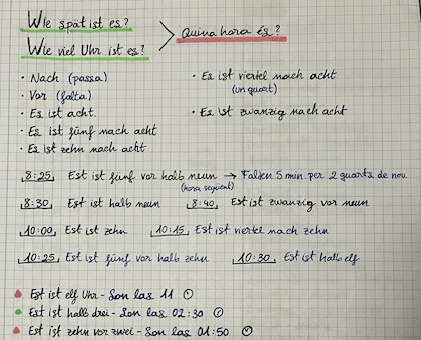 Wie spät ist es?
Wie viel Uhr ist es? > Quina hora és?
· Nach (passa)
· Vor (falta)
· Es ist acht.
· Es ist fünf nach acht
· Es ist zehn nach acht
· Es ist viertel nach acht
(un quart)
· Es ist zwanzig nach acht
8:25 Est ist fünf vor halb neun → Falten 5 min. per 2 quarts de nou.
(hora següent)
8:30 Est ist halb neun 8:40 Est ist zwanzig vor neun
10:00 Est ist zehn 10:15 Est ist viertel nach zehn
10:25 Est ist fünf vor halb zehn 10:30 Est ist halb elf
Est ist elf Uhr - Son las 11
Est ist halb drei - Son las 02:30
Est ist zehn vor zwei - Son las 01:50